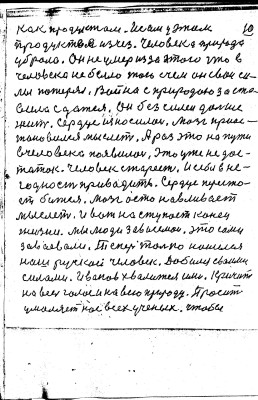 10
как продуктам. И сам у этим
продуктам изчез. Человека природа
убрала. Он не умер из за этого что в
человека не было того с чем он свои си-
лы потерял. Война с природою заста-
вела сдатся. Он без силен дальше
жить. Сердце износилось. Мозг приос-
тановился мыслеть. А раз это на пути
в человека появилось, Это уже не дос-
таток. Человек стареет. И себя в не-
годность приводить. Сердце перестае
биться. Мозг останавливает
мыслеть. И вот наступает конец
жизни. Мы люди зависемои. Это сами
завоевали. Теперь только нашелся
наш русской человек. Добился своими
силами. Иванов хвалится ими. Кричит
на весь голос и на всю природу. Просит
умоляет нас всех ученых. чтобы